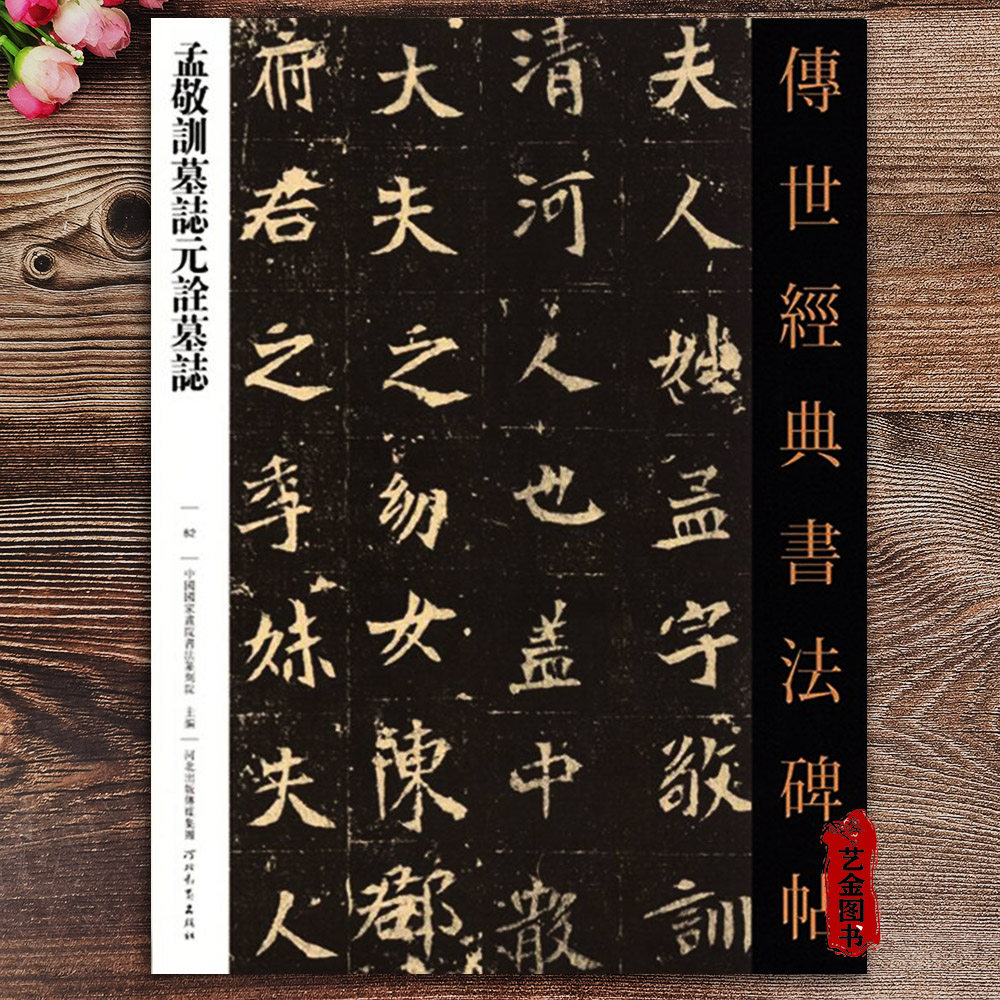 傳世經典書法碑帖
夫人姓孟字敬訓
清河人也蓋中散
大夫之幼女陳郡
府君之季妹夫人
孟敬訓墓誌元詮墓誌
中國國家畫院書法篆刻院 主編
河北出版傳媒集團
艺金图书